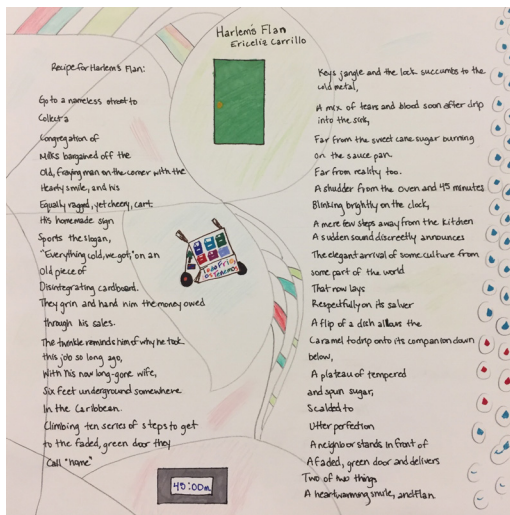 Harlem's Flan
Ericeliz Carrillo
Recipe for Harlem's Flan:
Go to a nameless street to
Collect a
Congregation of
Milks bargained off the
Old, fraying man on the corner with the
Hearty smile, and his
Equally ragged, yet cheery, cart.
His homemade sign
Sports the slogan,
"Everything cold, we got," on an
Old piece of
Disintegrating cardboard.
They grin and hand him the money owed
through his sales.
The twinkle reminds him of why he took
this job so long ago,
With his now long-gone wife,
Six feet underground somewhere
In the Caribbean.
Climbing ten series of steps to get
to the faded, green door they
Call "home"
Todo Frio,
Los Tenemos
45:00m
Keys jangle and the lock succumbs to the
cold metal,
A mix of tears and blood soon after drip
into the sink,
Far from the sweet cane sugar burning
on the sauce pan.
Far from reality too.
A shudder from the oven and 45 minutes
Blinking brightly on the clock,
A mere few steps away from the kitchen
A sudden sound discreetly announces
The elegant arrival of some culture from
some part of the world
That now lays
Respectfully on its saucer
A flip of a dish allows the
Caramel to drip onto its companion down
below,
A plateau of tempered
and spun sugar,
Scalded to
Utter perfection
A neighbor stands in front of
A faded, green door and delivers
Two of two things
A heartwarming smile, and flan.